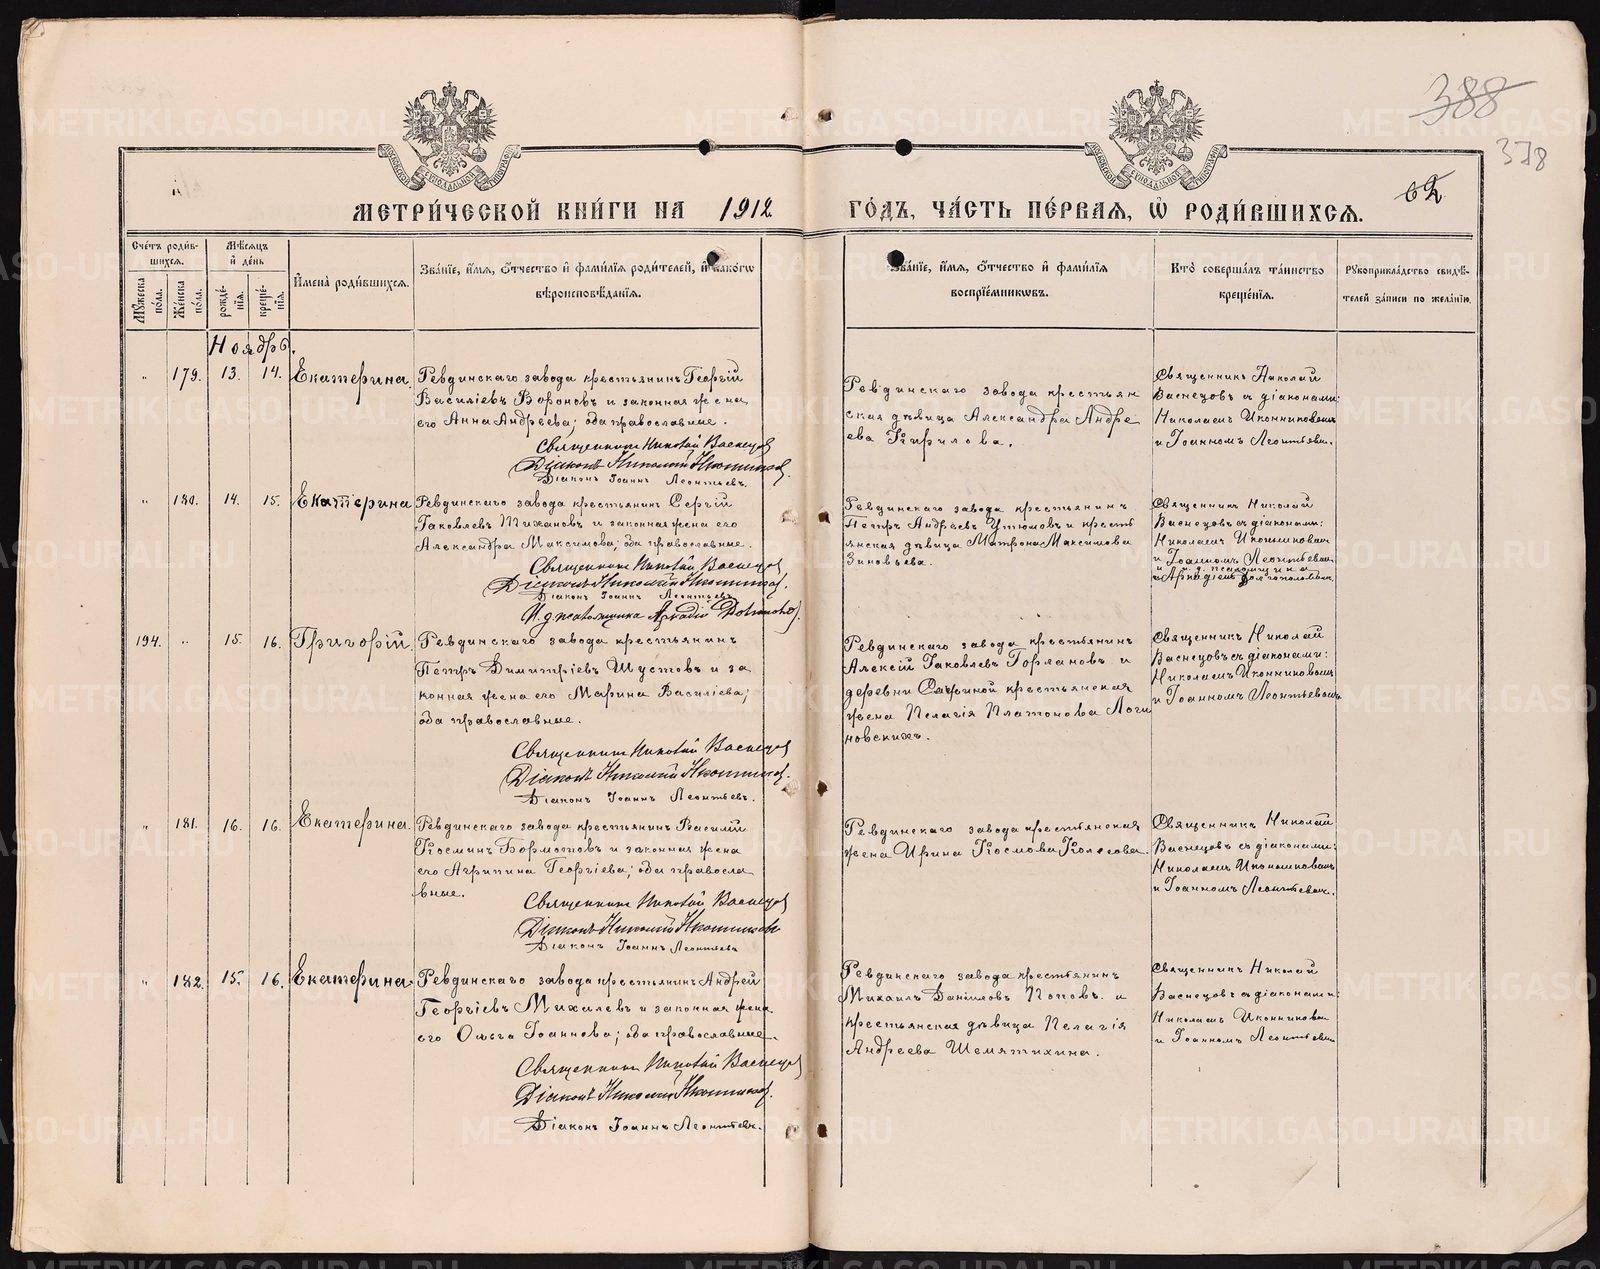 388
378
62
МЕТРИ́ЧЕСКОЙ КНИ́ГИ НА 1912 ГО́ДЪ, ЧА́СТЬ ПЕ́РВАЯ, Ѡ҆ РОДИ́ВШИХСЯ.
Сче́тъ роди́в-
шихся.
Му́жеска
по́ла.
Же́нска
по́ла.
Мѣ́сяцъ
и҆ де́нь
рожде́-
нїя.
креще́-
нїя.
И҆мена̀ роди́вшихся.
Зва́нїе, и҆́мя, ѻ҆́тчество и҆ фами́лїя роди́телей, и҆ како́гѡ
вѣроисповѣ́данїя.
Зва́нїе, и҆́мя, ѻ҆́тчество и҆ фами́лїя
воспрїе́мникѡвъ.
Кто̀ соверша́лъ та́инство
креще́нїя.
Рукоприкла́дство свидѣ́-
телей за́писи по жела́нїю.
Ноябрь.
" 179. 13. 14. Екатерина.
Ревдинскаго завода крестьянинъ Георгій
Василіевъ Вороновъ и законная жена
его Анна Андреева; оба православные.
Священникъ Николай Васнецов
Діаконъ Николай Иконников
Діаконъ Іоаннъ Леонтьевъ.
Ревдинскаго завода крестьян
ская дѣвица Александра Андре
ева Кирилова.
Священникъ Николай
Васнецовъ съ діаконами:
Николаемъ Иконниковымъ
и Іоанномъ Леонтьевым.
" 180. 14. 15. Екатерина
Ревдинскаго завода крестьянинъ Сергій
Іаковлевъ Тихановъ и законная жена его
Александра Максимова; оба православные.
Священникъ Николай Васнецов
Діаконъ Николай Иконников.
Діаконъ Іоаннъ Леонтьевъ
И. д. псаломщика Аркадій
Ревдинскаго завода крестьянинъ
Петръ Андреевъ Утюмовъ и кресть
янская дѣвица Матрона Максимова
Зиновьева.
Священникъ Николай
Васнецовъ съ діаконами:
Николаемъ Иконниковым
и Іоанномъ Леонтьевым
и и. д. псаломщика
Аркадіемъ
194. " 15. 16. Григорій.
Ревдинскаго завода крестьянинъ
Петръ Димитріевъ Шустовъ и за
конная жена его Марина Василіева;
оба православные.
Священникъ Николай Васнецов
Діаконъ Николай Иконников.
Діаконъ Іоаннъ Леонтьевъ.
Ревдинскаго завода крестьянинъ
Алексій Іаковлевъ Горлановъ и
деревни крестьянская
жена Пелагія Платонова Логи
новскихъ.
Священникъ Николай
Васнецовъ съ діаконами:
Николаемъ Иконниковымъ
и Іоанномъ Леонтьевымъ
" 181. 16. 16. Екатерина.
Ревдинскаго завода крестьянинъ Василій
Косминъ Бормотовъ и законная жена
его Агрипина Георгіева; оба правосла
вные.
Священникъ Николай Васнецов
Діаконъ Николай Иконников
Діаконъ Іоаннъ Леонтьевъ
Ревдинскаго завода крестьянская
жена Ирина Космова Колесова.
Священникъ Николай
Васнецовъ съ діаконами:
Николаемъ Иконниковымъ
и Іоанномъ Леонтьевым.
" 182. 15. 16. Екатерина.
Ревдинскаго завода крестьянинъ Андрей
Георгіевъ Михалевъ и законная жена
его Ольга Іоаннова; оба православные.
Священникъ Николай Васнецов
Діаконъ Николай Иконников.
Діаконъ Іоаннъ Леонтьевъ.
Ревдинскаго завода крестьянинъ
Михаилъ Даніиловъ Поповъ и
крестьянская дѣвица Пелагія
Андреева Шемятихина.
Священникъ Николай
Васнецовъ съ діаконами:
Николаемъ Иконниковым
и Іоанномъ Леонтьевым
METRIKI.GASO-URAL.RU